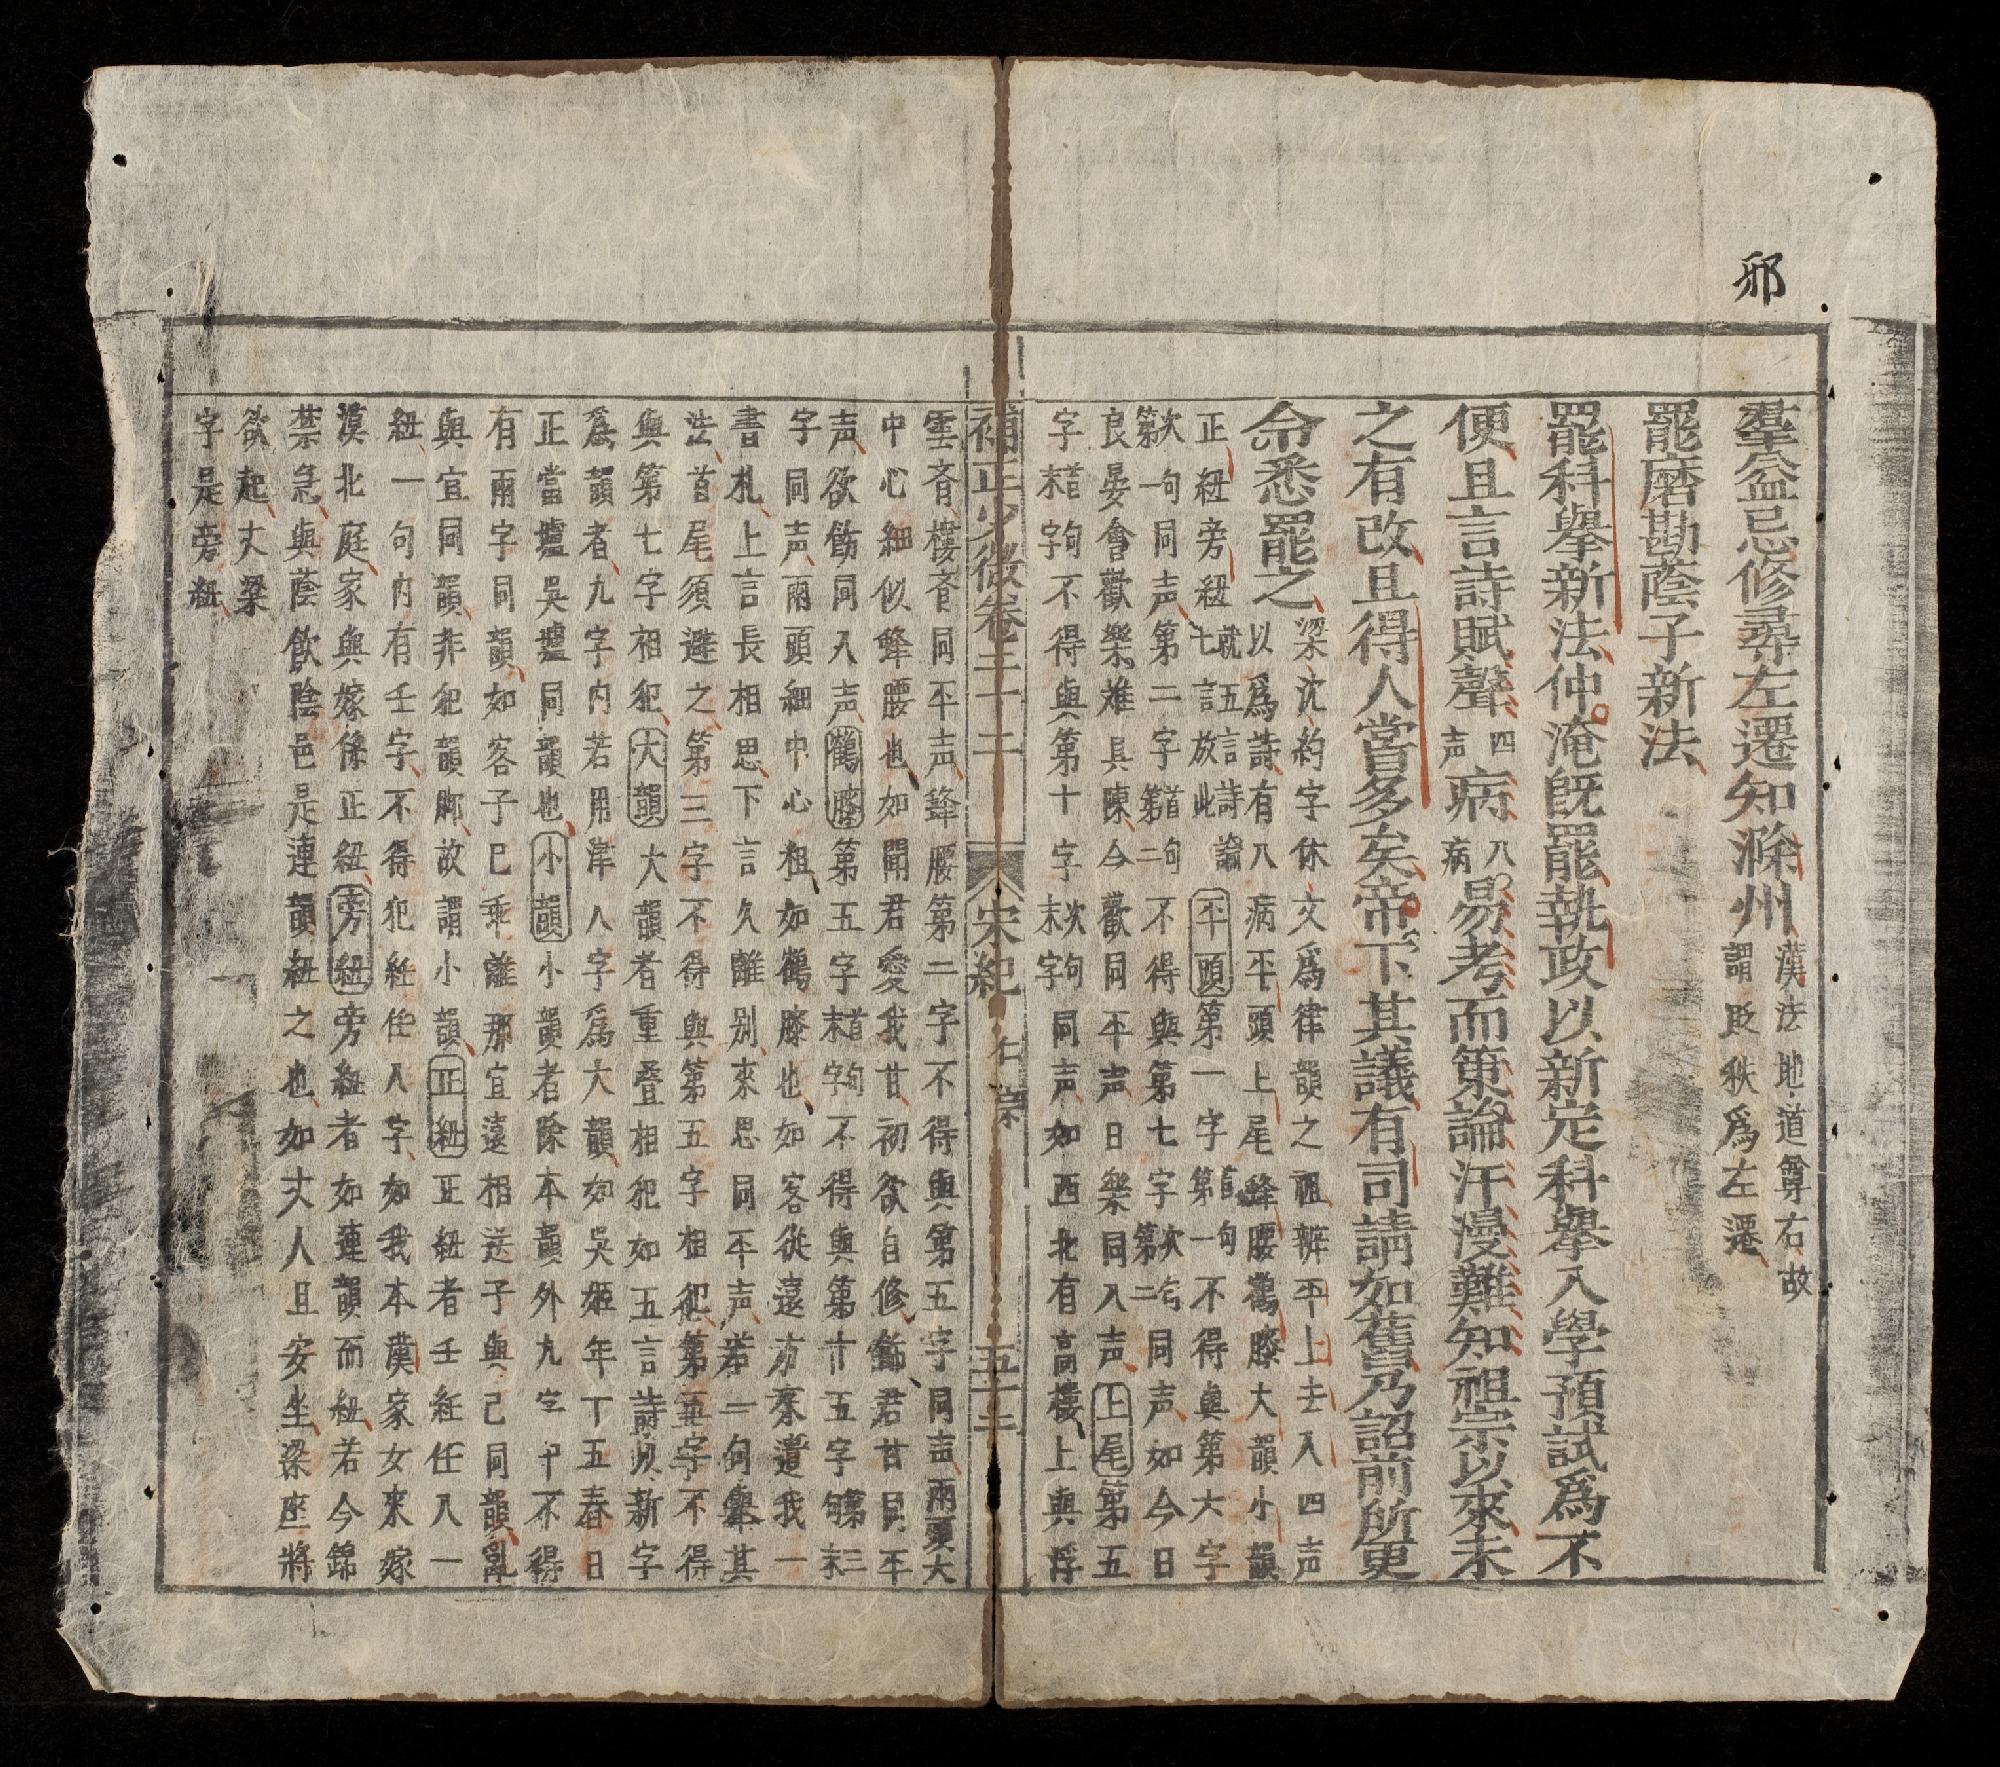 邪
羣益忌修尋左遷知滁州漢法地道尊右故謂貶秩爲左遷
罷磨勘蔭子新法
罷科舉新法仲淹旣罷執政以新定科舉入學預試爲不
便且言詩賦聲四声病八病易考而策論汗漫難知祖宗以來未
之有改且得人當多矣帝下其議有司請如舊乃詔前所更
命悉罷之梁沈約字休文爲律韻之祖辨平上去入四声
以爲詩有八病平頭上尾蜂腰鶴膝大韻小韻
正紐旁紐就五言詩論七言放此平頭第一字首句第一不得與第六字
次句第一同声第二字首句第二不得與第七字次句第二同声如今日
良晏會歡樂難具陳今歡同平声日樂同入声上尾第五
字首句末字不得與第十字次句末字同声如西北有高樓上與浮
補正少微卷三十二 宋紀 仁宗 五十二
雲斉樓斉同平声蜂腰第二字不得與第五字同声兩頭大
中心細似蜂腰也如聞君愛我甘初欲自修飾君甘同平
声欲飭同入声鶴膝第五字首句末字不得與第廿五字第三句末
字同声兩頭細中心粗如鶴膝也如客從遠方來遺我一
書札上言長相思下言久離別來思同平声若一句舉其
法首尾須避之第三字不得與第五字相犯第五字不得
與第七字相犯大韻大韻者重疊相犯如五言詩以新字
爲韻者九字内若用津人字爲大韻如吳姬年丁五春日
正當壚吳壚同韻也小韻小韻者除本韻外九字中不得
有兩字同韻如客子已乖離那宜遠相送子與己同韻離
與宜同韻非犯韻脚故謂小韻正紐正紐者壬紝任入一
紐一句内有壬字不得犯紝任入字如我本漢家女來嫁
漠北庭家與嫁係正紐旁紐旁紐者如連韻而紐若今錦
禁急與蔭飲陰邑是連韻紐之也如丈人且安坐梁座將
欲起丈梁
字是旁紐